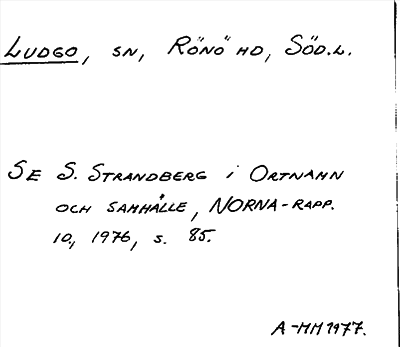 LUDGO, SN, RÖNÖ HD, SÖD.L.
SE S. STRANDBERG i ORTNAMN
OCH SAMHÄLLE, NORNA-RAPP.
10, 1976, s. 85.
A-MM 1977.